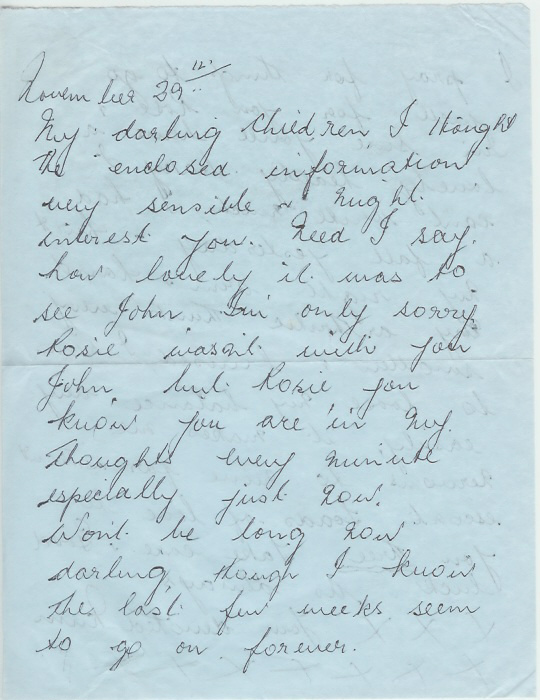 November 29
My darling Children I thought
the enclosed information
very sensible & might
interest you. Need I say.
how lovely it was to
see John I'm only sorry
Rosie wasn't with you
John but Rosie you
know you are in my
thoughts every minute
especially just now.
Won't be long now
darling, though I know
the last few weeks seem
to go on forever.